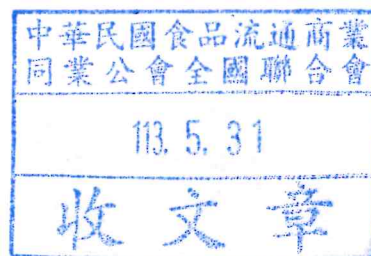 中華民國食品流通商業
同業公會全國聯合會
113. 5. 31
收文章